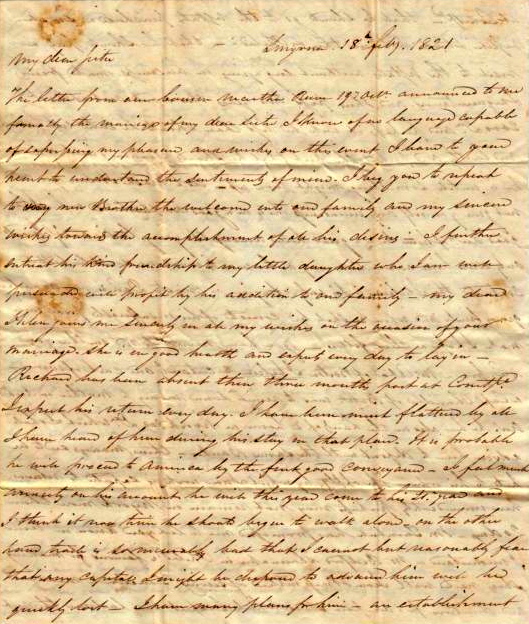 Smyrna 18th feby. 1821
My dear sister
The letter from our Cousin Martha 19 Octr. announced to me
formally the marriage of my dear Sister I know of no language capable
of expressing my pleasure and wishes on this event I leave to your
heart to understand the sentiments of mine. I beg you to repeat
to my new Brother the welcome into our family and my sincere
wishes toward the accomplishment of all his desires – I further
intreat his kind friendship to my little daughter who I am well
persuaded will profit by his addition to our family – my dear
Helen joins me sincerely in all my wishes on the occasion of your
marriage. She is in good health and expects every day to lay in –
Richard has been absent these three months past at Constple
I expect his return every day. I have been most flattered by all
I have heard of him during his stay in that place. It is probable
he will proceed to America by the first good conveyance – I feel much
anxiety on his account he will this year come to his 21 year and
I think it now time he should begin to walk alone. on the other
hand trade is so miserably bad that I cannot but reasonably fear
that any capital I might be disposed to advance him will be
quickly lost – I have many plans for him – an establishment